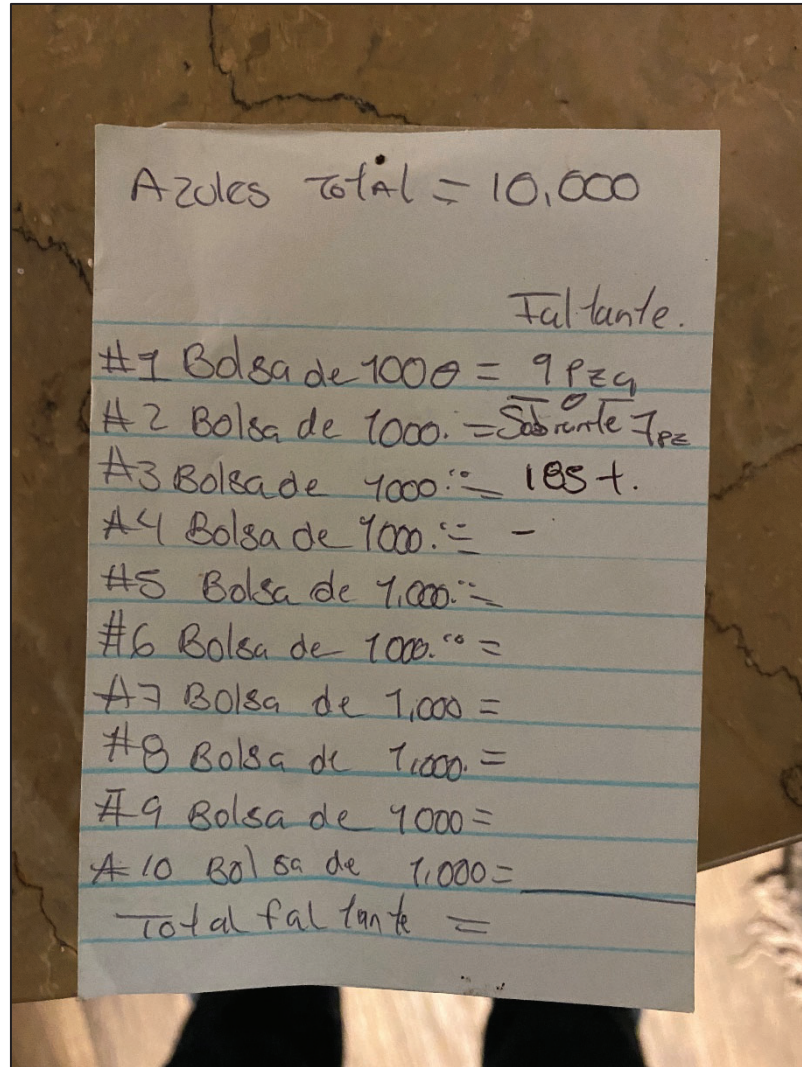 Azules Total = 10,000
Faltante.
#1 Bolsa de 1000 = 9 Pza
#2 Bolsa de 1000. = Sobrante 7pz
#3 Bolsa de 1000.°° = 185 t.
#4 Bolsa de 1000.°° = -
#5 Bolsa de 1,000.°° =
#6 Bolsa de 1000.°° =
#7 Bolsa de 1,000 =
#8 Bolsa de 1,000. =
#9 Bolsa de 1000 =
#10 Bolsa de 1,000 =
Total faltante =